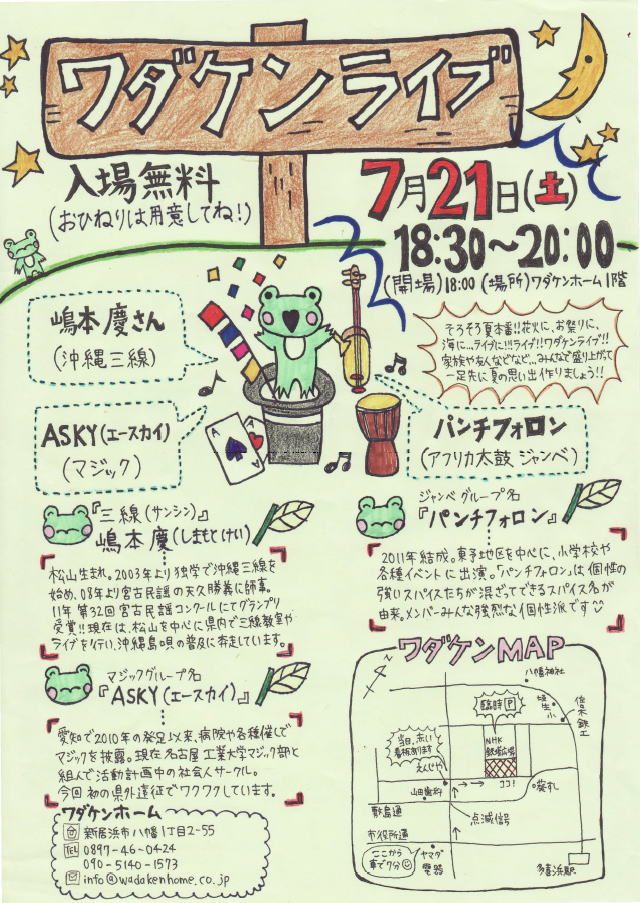 ワダケンライブ
入場無料
(おひねりは用意してね!)
7月21日(土)
18:30～20:00
(開場)18:00 (場所)ワダケンホーム1階
嶋本慶さん
(沖縄三線)
そろそろ夏本番!!花火に、お祭りに、
海に...ライブに!!ライブ!!ワダケンライブ!!
家族や友人などなど...みんなで盛り上がって
一足先に夏の思い出作りましょう!!
ASKY(エースカイ)
(マジック)
A
A
パンチフォロン
(アフリカ太鼓 ジャンベ)
『三線(サンシン)』
嶋本 慶(しまもとけい)
松山生まれ。2003年より独学で沖縄三線を
始め、08年より宮古民謡の天久勝義に師事。
11年 第32回宮古民謡コンクールにてグランプリ
受賞!!現在は、松山を中心に県内で三線教室や
ライブを行い、沖縄島唄の普及に奔走しています。
ジャンベグループ名
『パンチフォロン』
2011年結成。東予地区を中心に、小学校や
各種イベントに出演。「パンチフォロン」は個性の
強いスパイスたちが混ざってできるスパイス名が
由来。メンバーみんな強烈な個性派です
マジックグループ名
『ASKY(エースカイ)』
愛知で2010年の発足以来、病院や各種催しで
マジックを披露。現在名古屋工業大学マジック部と
組んで活動計画中の社会人サークル。
今回初の県外遠征でワクワクしています。
ワダケンホーム
新居浜市八幡1丁目2-55
TEL 0897-46-0424
090-5140-1573
info@wadakenhome.co.jp
ワダケンMAP
八幡神社
臨時P
垣生小
佐々木鉄工
当日、赤い
看板有ります
NHK
鉄塔広場
えんじや
山田歯科
ココ!
葵すし
敷島通
点滅信号
市役所通
ここから
車で7分
ヤマダ
電器
多喜浜駅